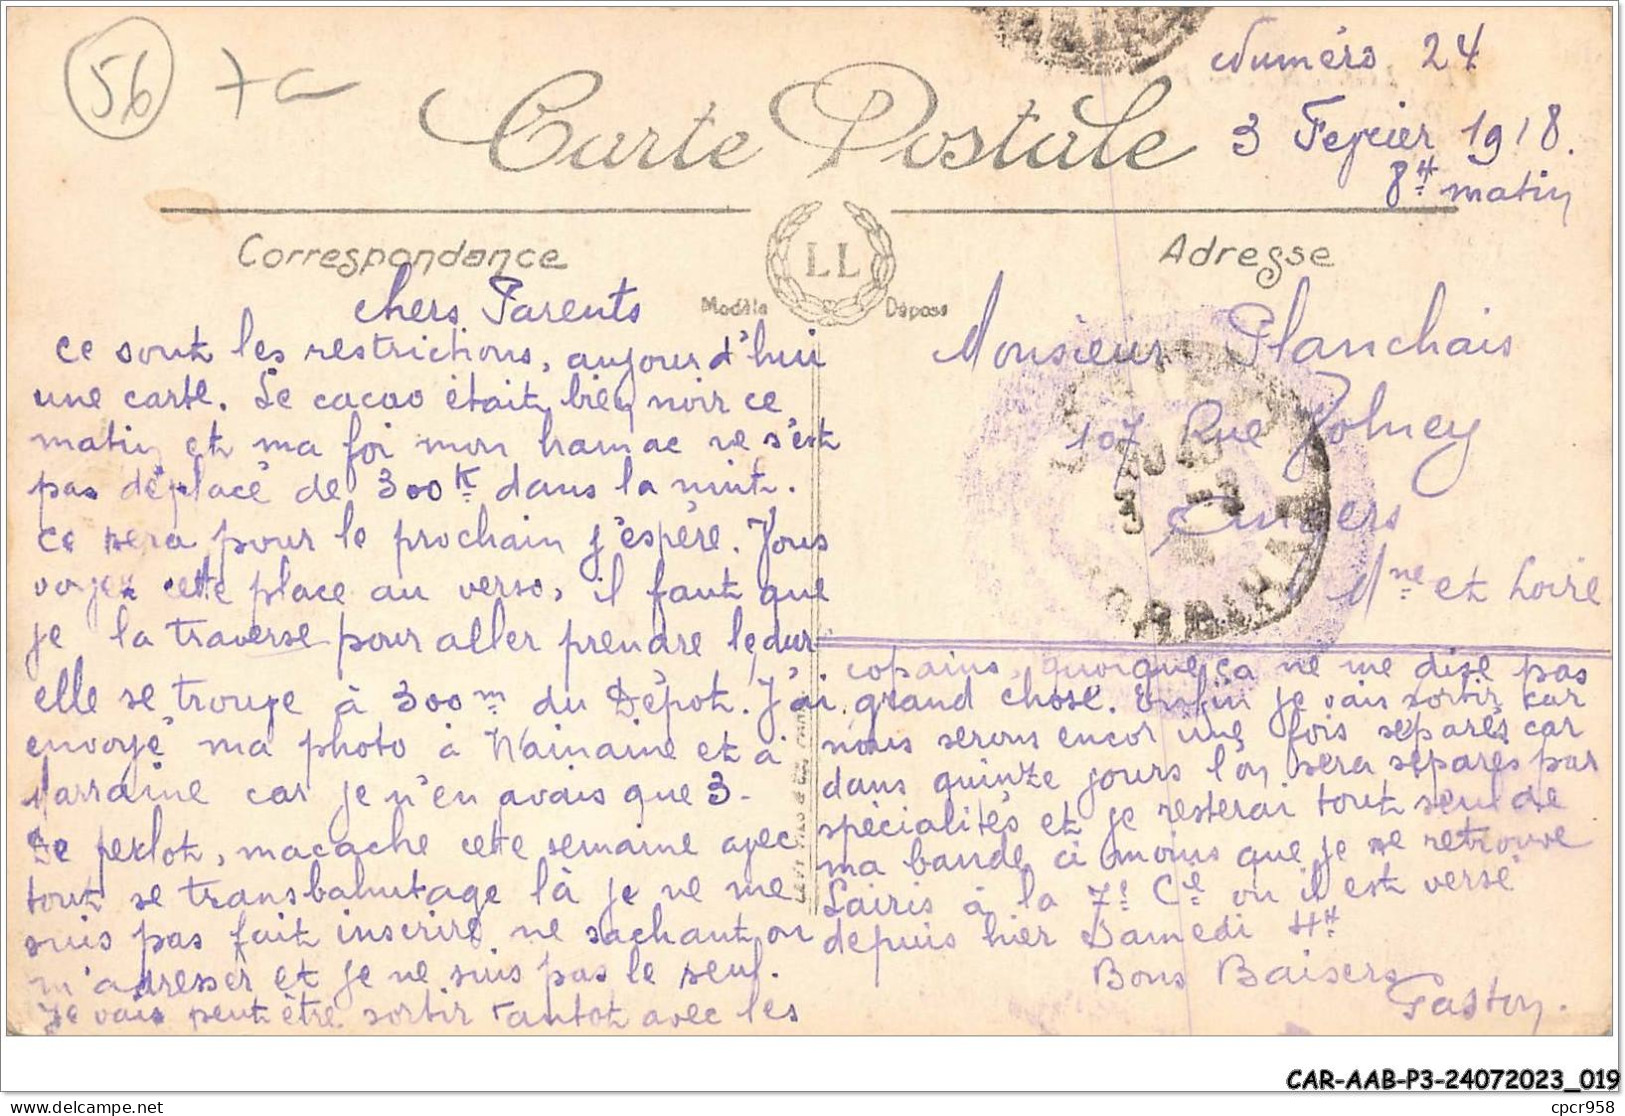 56
Numéro 24
Carte Postale
3 Fevrier 1918.
8H matin
Correspondance
LL
Modèle Déposé
Adresse
chers Parents
ce sont les restrictions, aujourd'hui
une carte. Le cacao était bien noir ce
matin et ma foi mon hamac ne s'est
pas déplacé de 300K dans la nuit.
ce sera pour le prochain j'espère. Vous
voyez cette place au verso, il faut que
je la traverse pour aller prendre le dur
elle se trouve à 300m du Dépot. J'ai
envoyé ma photo à Nainaine et à
Marraine car je n'en avais que 3.
De perlot, macache cette semaine avec
tout se transbahutage là je ne me
suis pas fait inscrire ne sachant ou
m'adresser et je ne suis pas le seul.
Je vais peut être sortir tantot avec les
Monsieur Planchais
107 Rue Volney
Angers
Mne et Loire
MORBIHAN
copains, quoique ça ne me dise pas
grand chose. Enfin je vais sortir car
nous serons encor une fois séparés car
dans quinze jours l'on sera séparés par
spécialités et je resterai tout seul de
ma bande à moins que je ne retrouve
Lairis à la 7e Cie ou il est versé
depuis hier Samedi 4H
Bons Baisers
Gaston.
CAR-AAB-P3-24072023_019
delcampe.net
cpcr958